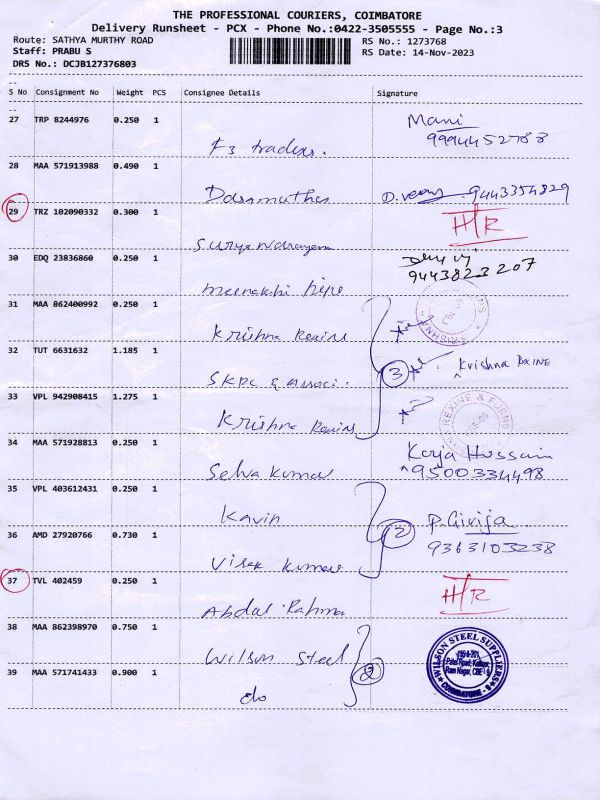 THE PROFESSIONAL COURIERS, COIMBATORE
Delivery Runsheet - PCX - Phone No.:0422-3505555 - Page No.:3
Route: SATHYA MURTHY ROAD RS No.: 1273768
Staff: PRABU S RS Date: 14-Nov-2023
DRS No.: DCJB127376803
S No Consignment No Weight PCS Consignee Details Signature
27 TRP 8244976 0.250 1 Mani
F3 traders. 9994452788
28 MAA 571913988 0.490 1
9443354829
29 TRZ 102090332 0.300 1 H/R
Surya Narayana
30 EDQ 23836860 0.250 1
meenakshi 9443823207
31 MAA 862400992 0.250 1
Krishna Rexins
32 TUT 6631632 1.185 1 3 Krishna REXINE
SKPC & Associ.
33 VPL 942908415 1.275 1 REXINE & FURNS
Krishna Rexins
34 MAA 571928813 0.250 1 Kaja Hussain
Selva Kumar 9500334498
35 VPL 403612431 0.250 1
Kavin 2 P. Girija
36 AMD 27920766 0.730 1 9363103238
Vivek Kumar
37 TVL 402459 0.250 1 H/R
Abdul Rahma
38 MAA 862398970 0.750 1
Wilson Steel WILSON STEEL SUPPLIERS
39 MAA 571741433 0.900 1 2 Ram Nagar, CBE-9
do COIMBATORE - 9